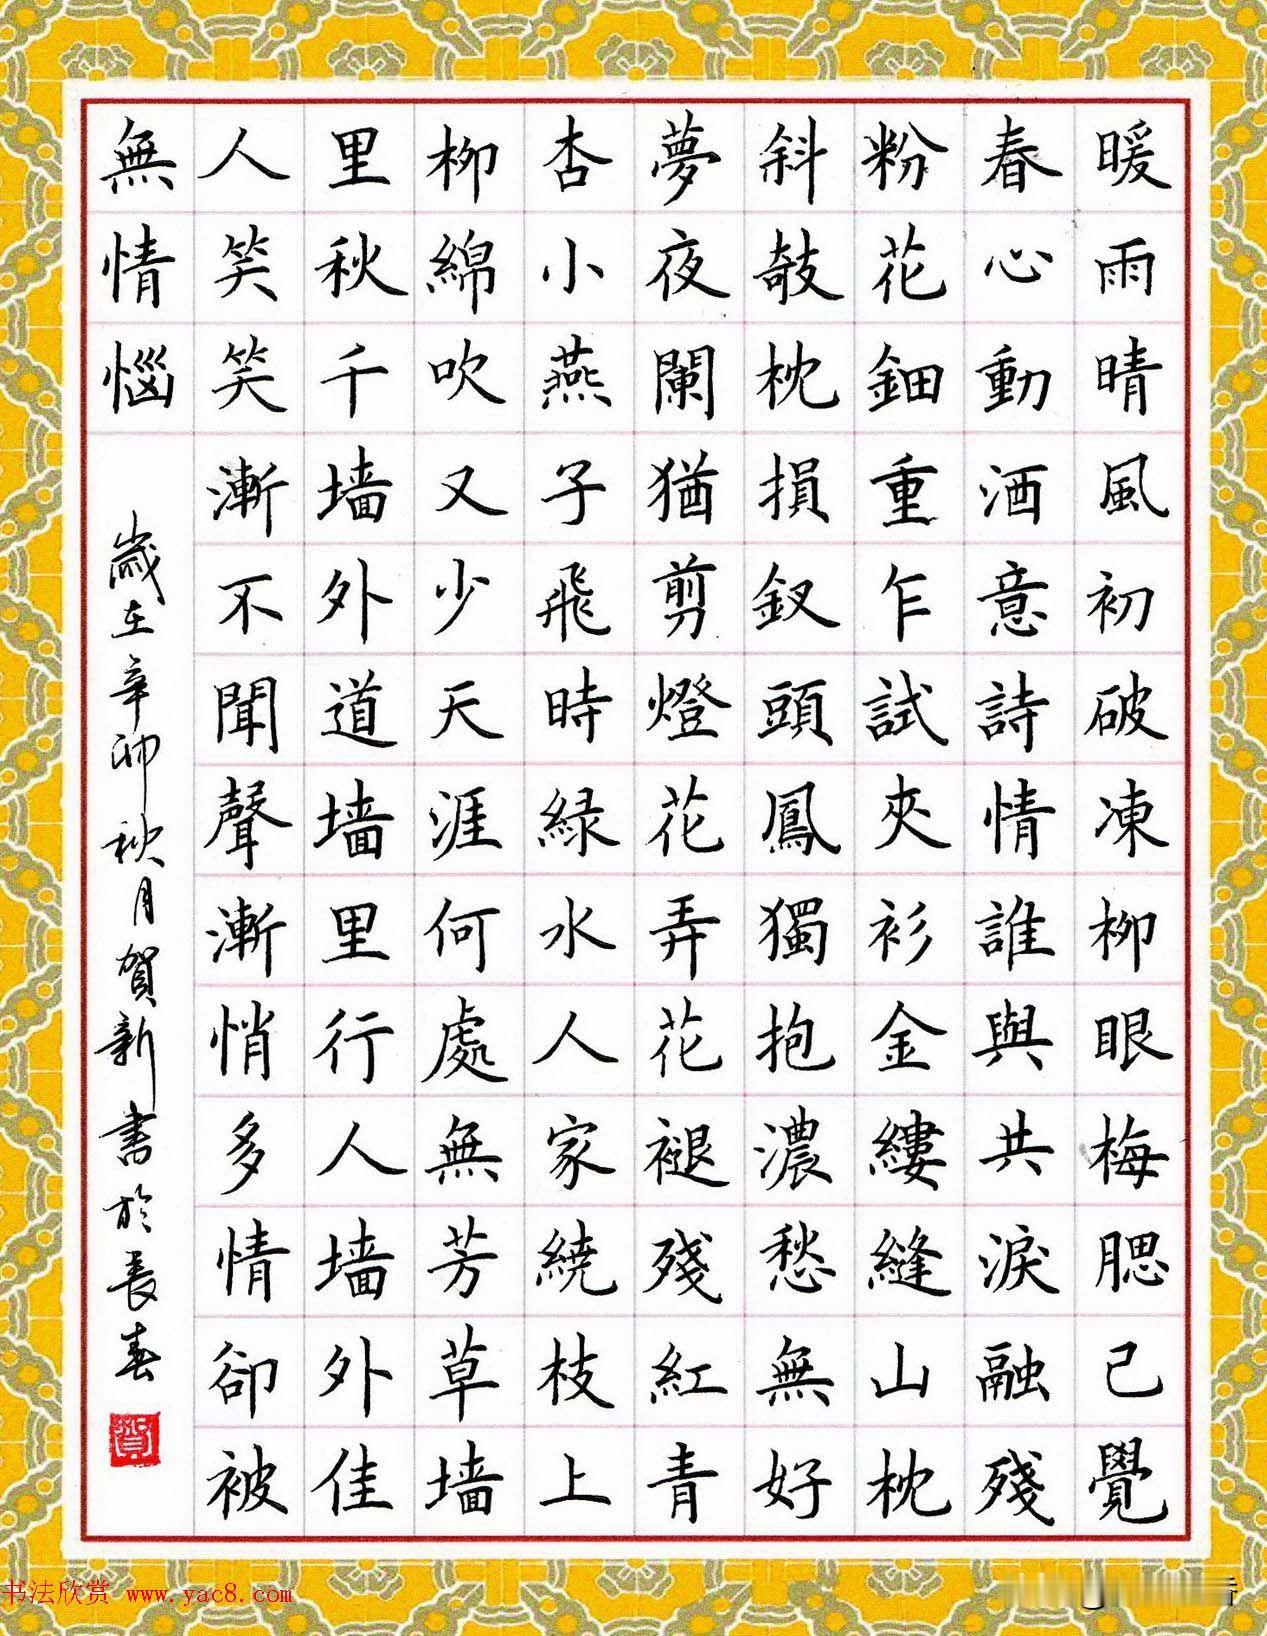 暖雨晴風初破凍柳眼梅腮已覺
春心動酒意詩情誰與共淚融殘
粉花鈿重乍試夾衫金縷縫山枕
斜攲枕損釵頭鳳獨抱濃愁無好
夢夜闌猶剪燈花弄花褪殘紅青
杏小燕子飛時緑水人家繞枝上
柳綿吹又少天涯何處無芳草墙
里秋千墙外道墙里行人墙外佳
人笑笑漸不聞聲漸悄多情卻被
無情惱
歲在辛卯秋月賀新書於長春
賀
书法欣赏 www.yac8.com